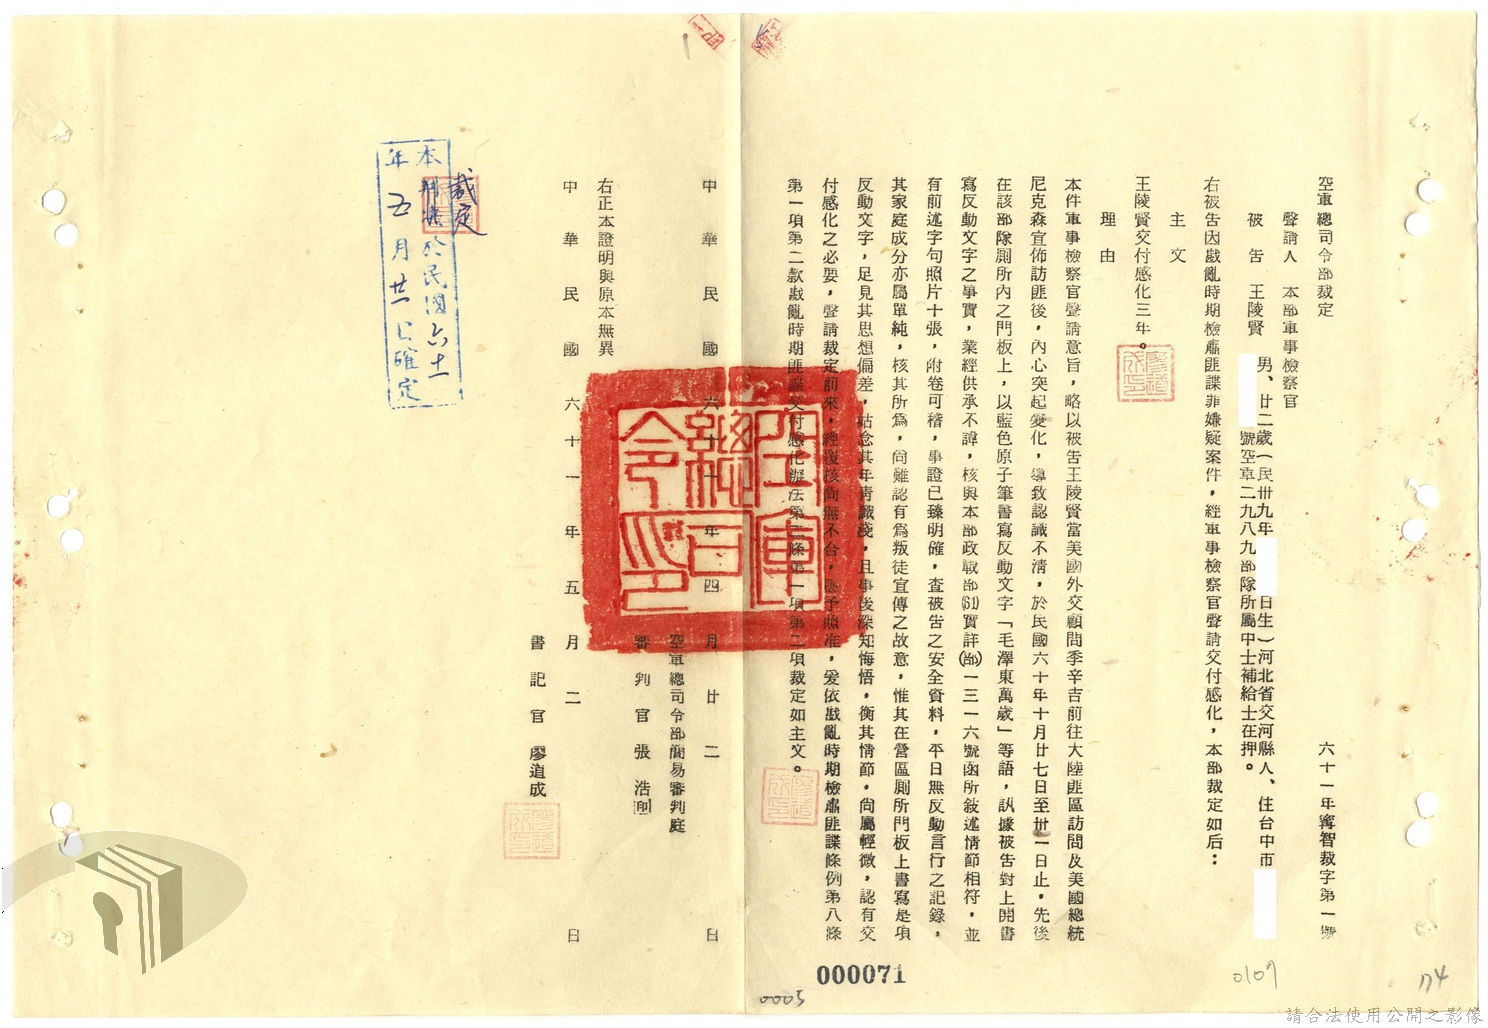 空軍總司令部裁定
六十一年審智裁字第一號
聲請人　本部軍事檢察官
被告　王陵賢　男、廿二歲（民卅九年　日生）河北省交河縣人、住台中市
號空軍二九八九部隊所屬中士補給士在押。
右被告因戡亂時期檢肅匪諜罪嫌疑案件，經軍事檢察官聲請交付感化，本部裁定如后：
主文
王陵賢交付感化三年。
理由
本件軍事檢察官聲請意旨，略以被告王陵賢當美國外交顧問季辛吉前往大陸匪區訪問及美國總統
尼克森宣佈訪匪後，內心突起變化，導致認識不清，於民國六十年十月廿七日至卅一日止，先後
在該部隊廁所內之門板上，以藍色原子筆書寫反動文字「毛澤東萬歲」等語，訊據被告對上開書
寫反動文字之事實，業經供承不諱，核與本部政戰部(61)實詳(部)一三一六號函所敘述情節相符，並
有前述字句照片十張，附卷可稽，事證已臻明確，查被告之安全資料，平日無反動言行之記錄，
其家庭成分亦屬單純，核其所為，尚難認有為叛徒宣傳之故意，惟其在營區廁所門板上書寫是項
反動文字，足見其思想偏差，姑念其年青識淺，且事後深知悔悟，衡其情節，尚屬輕微，認有交
付感化之必要，聲請裁定前來，經覆核尚無不合，應予照准，爰依戡亂時期檢肅匪諜條例第八條
第一項第二款戡亂時期匪諜交付感化辦法第二條第一項第二項裁定如主文。
中華民國六十一年四月廿二日
空軍總司令部簡易審判庭
審判官　張浩
右正本證明與原本無異
中華民國六十一年五月二日
書記官　廖道成
裁定
本判決於民國六十一
年五月廿一日確定
空軍總司令印
000071
0005
0109
174
請合法使用公開之影像